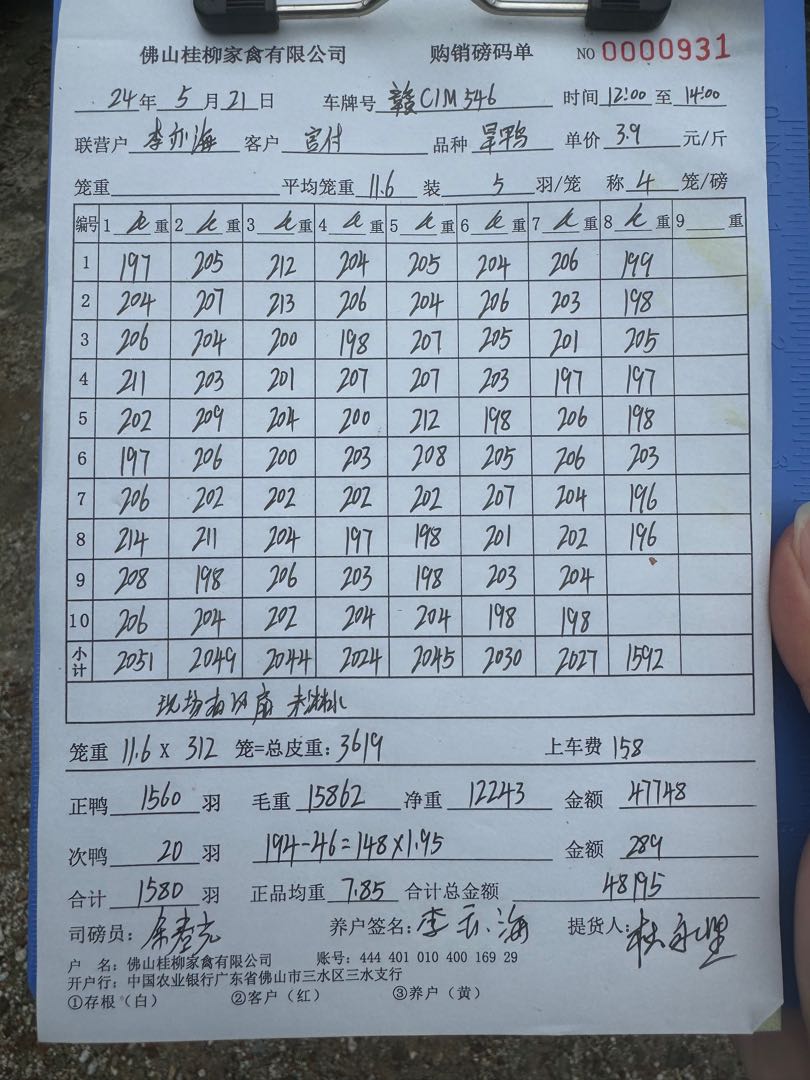 佛山桂柳家禽有限公司 购销磅码单 NO 0000931
24年 5月 21日 车牌号 赣C1M546 时间 12:00 至 14:00
联营户 李亦海 客户 官付 品种 旱鸭 单价 3.9 元/斤
笼重 平均笼重 11.6 装 5 羽/笼 称 4 笼/磅
编号 1 重 2 重 3 重 4 重 5 重 6 重 7 重 8 重 9 重
1 197 205 212 204 205 204 206 199
2 204 207 213 206 204 206 203 198
3 206 204 200 198 207 205 201 205
4 211 203 201 207 207 203 197 197
5 202 209 204 200 212 198 206 198
6 197 206 200 203 208 205 206 203
7 206 202 202 202 202 207 204 196
8 214 211 204 197 198 201 202 196
9 208 198 206 203 198 203 204
10 206 204 202 204 204 198 198
小计 2051 2049 2044 2024 2045 2030 2027 1592
现场有风扇
笼重 11.6 X 312 笼=总皮重: 3619 上车费 158
正鸭 1560 羽 毛重 15862 净重 12243 金额 47748
次鸭 20 羽 194-46=148×1.95 金额 289
合计 1580 羽 正品均重 7.85 合计总金额 48195
司磅员: 养户签名: 李 海 提货人:
户 名: 佛山桂柳家禽有限公司 账号: 444 401 010 400 169 29
开户行: 中国农业银行广东省佛山市三水区三水支行
①存根（白） ②客户（红） ③养户（黄）